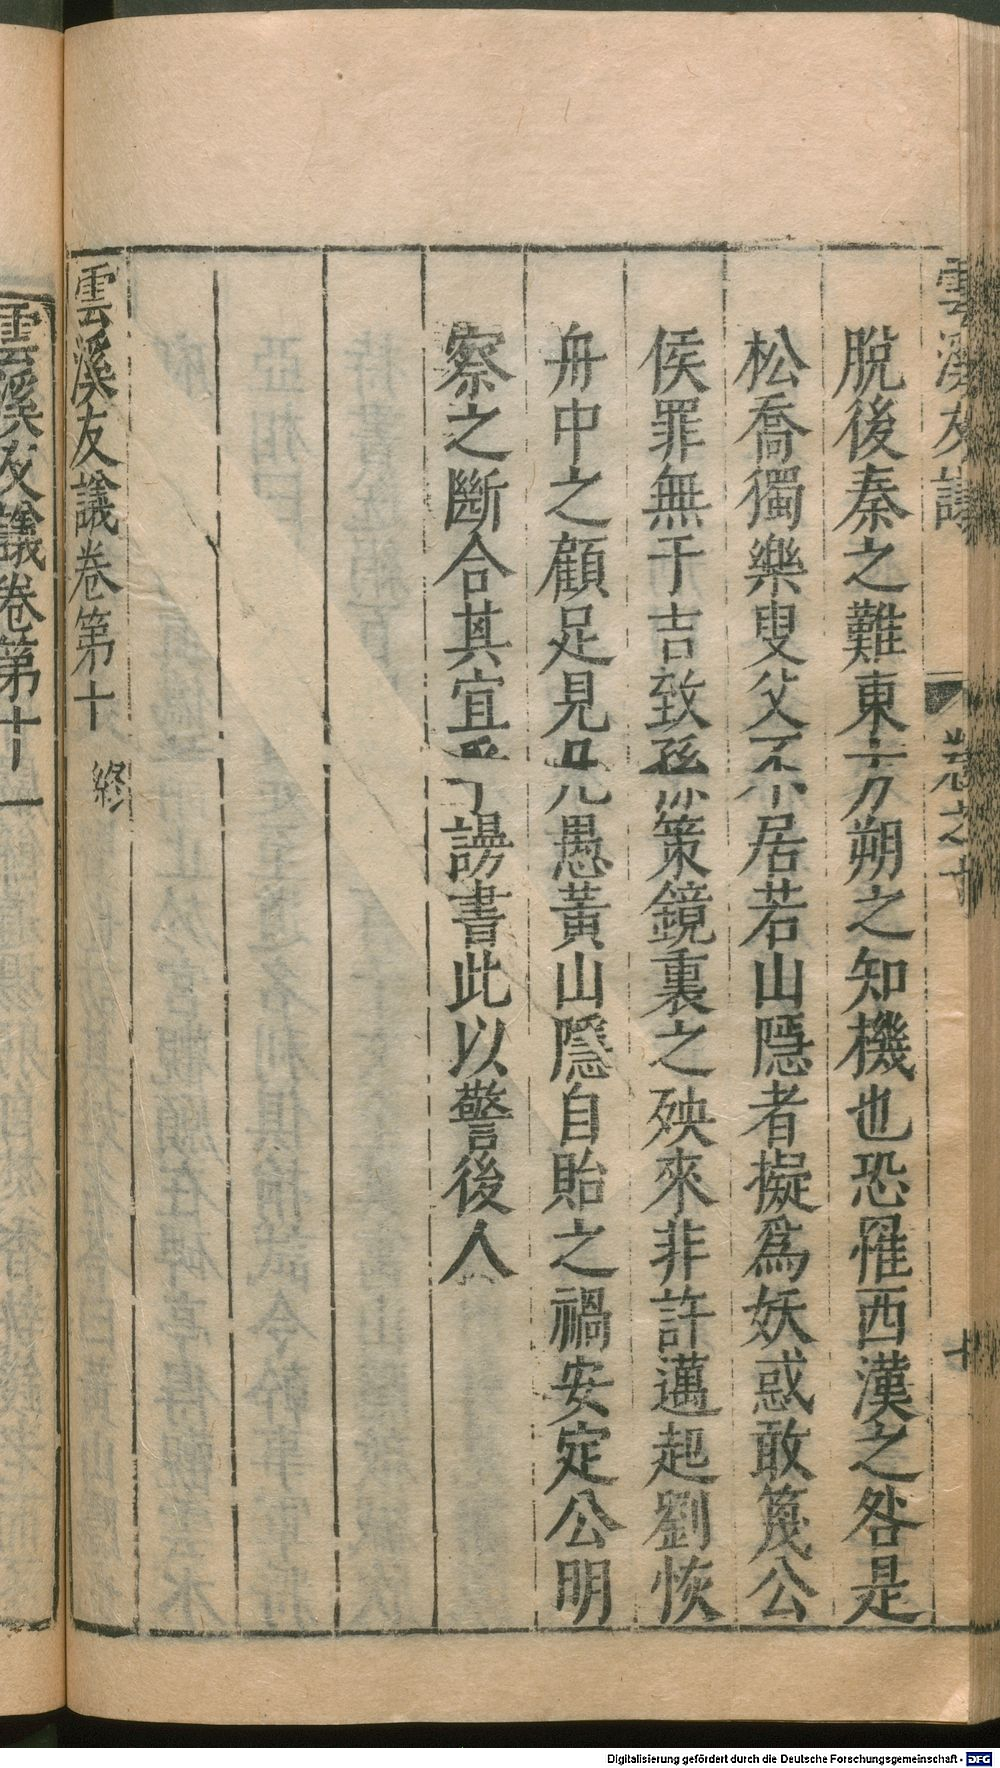 雲溪友議
卷之十
十
脫後秦之難東方朔之知機也恐罹西漢之咎是
松喬獨樂叟父不居若山隱者擬爲妖惑敢篾公
侯罪無于吉致孫策鏡裏之殃來非許邁起劉恢
舟中之顧足見凡愚黃山隱自貽之禍安定公明
察之斷合其宜乎謗書此以警後人
雲溪友議卷第十 終
雲溪友議卷第十一
Digitalisierung gefördert durch die Deutsche Forschungsgemeinschaft - DFG